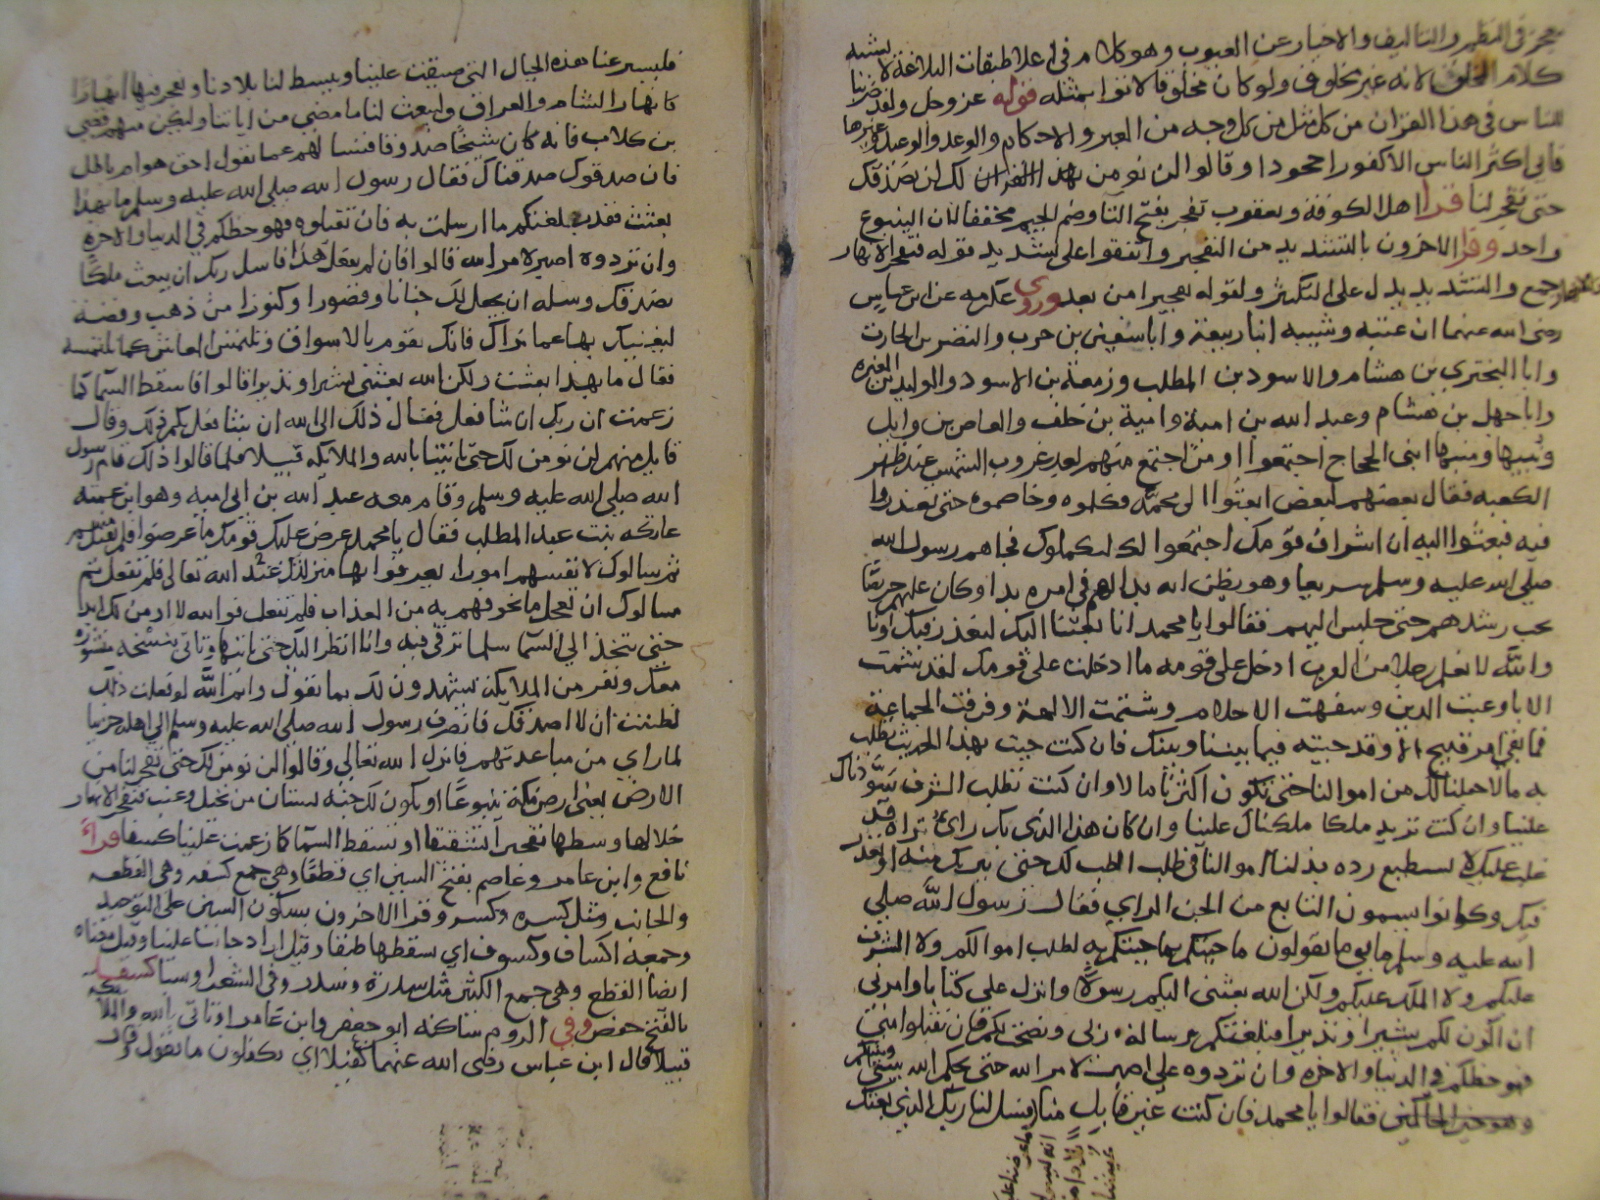 معجز في النظم والتاليف والاخبار عن الغيوب وهو كلام في اعلا طبقات البلاغة لا يشبه
كلام الخلق لانه غير مخلوق ولو كان مخلوقا لاتوا بمثله قوله عز وجل ولقد صرفنا
للناس في هذا القران من كل مثل من كل وجه من العبر والاحكام والوعد والوعيد وغيرها
فابى اكثر الناس الا كفورا جحودا وقالوا لن نومن بهذا القران لك لن نصدقك
حتى تفجر لنا قرا اهل الكوفة ويعقوب تفجر بفتح التا وضم الجيم مخففا لان الينبوع
واحد وقرا الاخرون بالتشديد من التفجير واتفقوا على تشديد قوله فتفجر الانهار
جمع والتشديد يدل على التكثير ولقوله تفجيرا من بعد وروى عكرمه عن ابن عباس
رضى الله عنهما ان عتبه وشيبه ابنا ربيعة وابا سفين بن حرب والنضر بن الحارث
وابا البختري بن هشام والاسود بن المطلب وزمعة بن الاسود والوليد بن المغيره
وابا جهل بن هشام وعبد الله بن امية وامية بن خلف والعاص بن وايل
ونبيها ومنبها ابنى الحجاج اجتمعوا او من اجتمع منهم بعد غروب الشمس عند ظهر
الكعبه فقال بعضهم لبعض ابعثوا الى محمد وكلموه وخاصموه حتى تعذروا
فيه فبعثوا اليه ان اشراف قومك اجتمعوا لك ليكلموك فجاهم رسول الله
صلى الله عليه وسلم سريعا وهو يظن انه بدا لهم في امره بدا وكان عليهم حريصا
يحب رشدهم حتى جلس اليهم فقالوا يا محمد انا بعثنا اليك لنعذر فيك وانا
والله لا نعلم رجلا من العرب ادخل على قومه ما ادخلت على قومك لقد شتمت
الابا وعبت الدين وسفهت الاحلام وشتمت الالهة وفرقت الجماعة
فما بقي امر قبيح الا وقد جيته فيما بيننا وبينك فان كنت جيت بهذا الحديث تطلب
به مالا جعلنا لك من اموالنا حتى تكون اكثرنا مالا وان كنت تطلب الشرف سودناك
علينا وان كنت تريد ملكا ملكناك علينا وان كان هذا الذى بك راي تراه قد
غلب عليك لا تستطيع رده بذلنا اموالنا في طلب الطب لك حتى نبريك منه او نعذر
فيك وكانوا يسمون التابع من الجن الراي فقال رسول الله صلى
الله عليه وسلم ما بي ما تقولون ما جيتكم بما جيتكم به لطلب اموالكم ولا الشرف
عليكم ولا الملك عليكم ولكن الله بعثنى اليكم رسولا وانزل على كتابا وامرنى
ان اكون لكم بشيرا ونذيرا فبلغتكم رسالة ربى ونصحت لكم فان تقبلوا منى
فهو حظكم في الدنيا والاخره وان تردوه على اصبر لامر الله حتى يحكم الله بينى وبينكم
وهو خير الحاكمين فقالوا يا محمد فان كنت غير قابل منا فسل لنا ربك الذى بعثك
فليسير عنا هذه الجبال التى ضيقت علينا ويبسط لنا بلادنا ويفجر فيها انهارا
كانهار الشام والعراق وليبعث لنا ما مضى من ابائنا وليكن منهم قصى
بن كلاب فانه كان شيخا صدوقا فنسالهم عما تقول احق هو ام باطل
فان صدقوك صدقناك فقال رسول الله صلى الله عليه وسلم ما بهذا
بعثت فقد بلغتكم ما ارسلت به فان تقبلوه فهو حظكم في الدنيا والاخره
وان تردوه اصبر لامر الله قالوا فان لم تفعل هذا فاسل ربك ان يبعث ملكا
يصدقك وسله ان يجعل لك جنانا وقصورا وكنوزا من ذهب وفضة
ليغنيك بها عما نراك فانك تقوم بالاسواق وتلتمس المعاش كما نلتمسه
فقال ما بهذا بعثت ولكن الله بعثنى بشيرا ونذيرا قالوا فاسقط السما كما
زعمت ان ربك ان شا فعل فقال ذلك الى الله ان شا فعل بكم ذلك وقال
قايل منهم لن نومن لك حتى تاتينا بالله والملايكه قبيلا فلما قالوا ذلك قام رسول
الله صلى الله عليه وسلم وقام معه عبد الله بن ابى اميه وهو ابن عمته
عاتكه بنت عبد المطلب فقال يا محمد عرض عليك قومك ما عرضوا فلم تقبله منهم
ثم سالوك لانفسهم امورا يعرفوا بها منزلتك عند الله تعالى فلم تفعل ثم
سالوك ان تعجل ما تخوفهم به من العذاب فلم تفعل فوالله لا اومن لك ابدا
حتى تتخذ الى السما سلما ترقى فيه وانا انظر اليك حتى تاتيها وتاتى بنسخه منشوره
معك ونفر من الملايكه يشهدون لك بما تقول وايم الله لو فعلت ذلك
لظننت ان لا اصدقك فانصرف رسول الله صلى الله عليه وسلم الى اهله حزينا
لما راى من مباعدتهم فانزل الله تعالى وقالوا لن نومن لك حتى تفجر لنا من
الارض يعنى ارض مكة ينبوعا او يكون لك جنه بستان من نخيل وعنب فتفجر الانهار
خلالها وسطها تفجيرا تشققا او تسقط السما كما زعمت علينا كسفا قرا
نافع وابن عامر وعاصم بفتح السين اي قطعا وهي جمع كسفه وهي القطعه
والجانب ومثل كسره وكسر وقرا الاخرون بسكون السين على التوحيد
وجمعه اكساف وكسوف اي تسقطها طبقا وقيل اراد جانبا علينا وقيل معناه
ايضا القطع وهي جمع الكثير مثل سدرة وسدر وفى الشعرا وسبا كسفا
بالفتح حفص وفي الروم ساكنه ابو جعفر وابن عامر او تاتى بالله والملايكه
قبيلا قال ابن عباس رضى الله عنهما كفيلا اي يكفلون ما تقول وقال